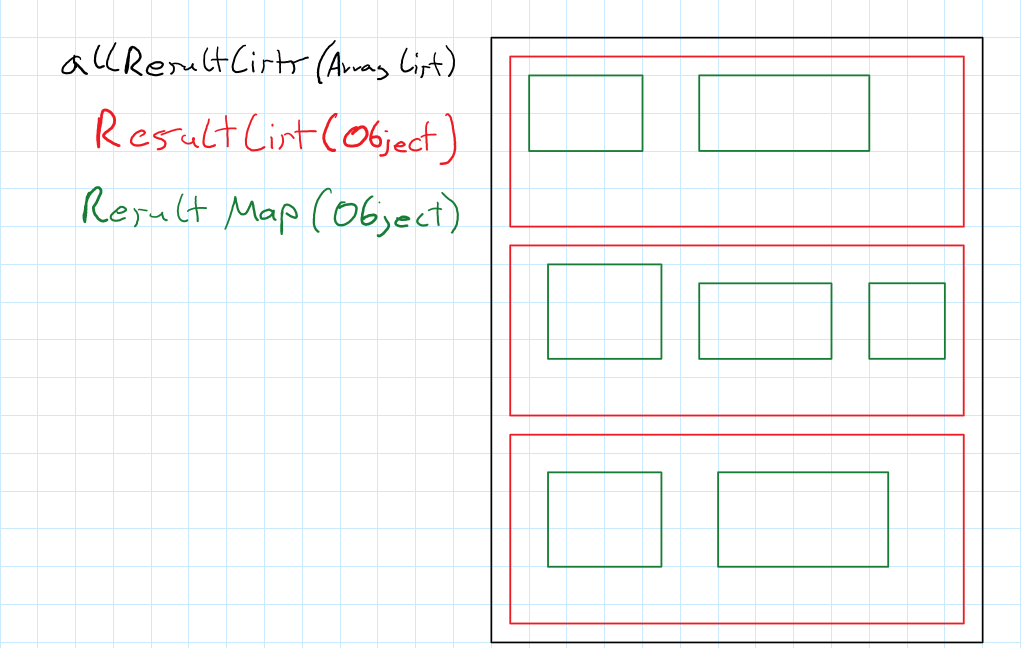 allResultLists (Array List)
ResultList (Object)
Result Map (Object)